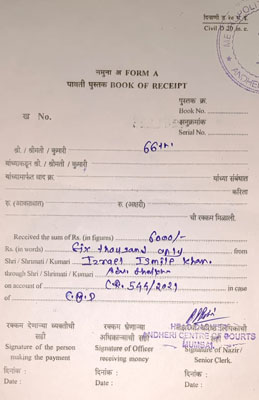 दिवाणी ड २० म. इ.
Civil D 20 m. e.
ANDHERI
नमुना अ FORM A
पावती पुस्तक BOOK OF RECEIPT
पुस्तक क्र.
Book No.
ख No.
अनुक्रमांक
Serial No.
66th
श्री. / श्रीमती / कुमारी
यांच्याकडून श्री. / श्रीमती / कुमारी
यांच्यामार्फत वाद क्र. यांच्या संबंधात
करिता
रु. (अक्षरात) रु. (अक्षरी)
ची रक्कम मिळाली.
Received the sum of Rs. (in figures) 6000/-
Rs. (in words) Six thousand only from
Shri / Shrimati / Kumari Izrael Ismile Khan.
through Shri / Shrimati / Kumari Adv.
on account of C.R. 544/2021 in case
of C.B.D
रक्कम देणाऱ्या व्यक्तीची
सही
Signature of the person
making the payment
दिनांक :
Date :
रक्कम घेणाऱ्या
अधिकाऱ्याची सही
Signature of Officer
receiving money
दिनांक :
Date :
ANDHERI CENTRE OF COURTS
MUMBAI
सही
Signature of Nazir/
Senior Clerk.
दिनांक :
Date :